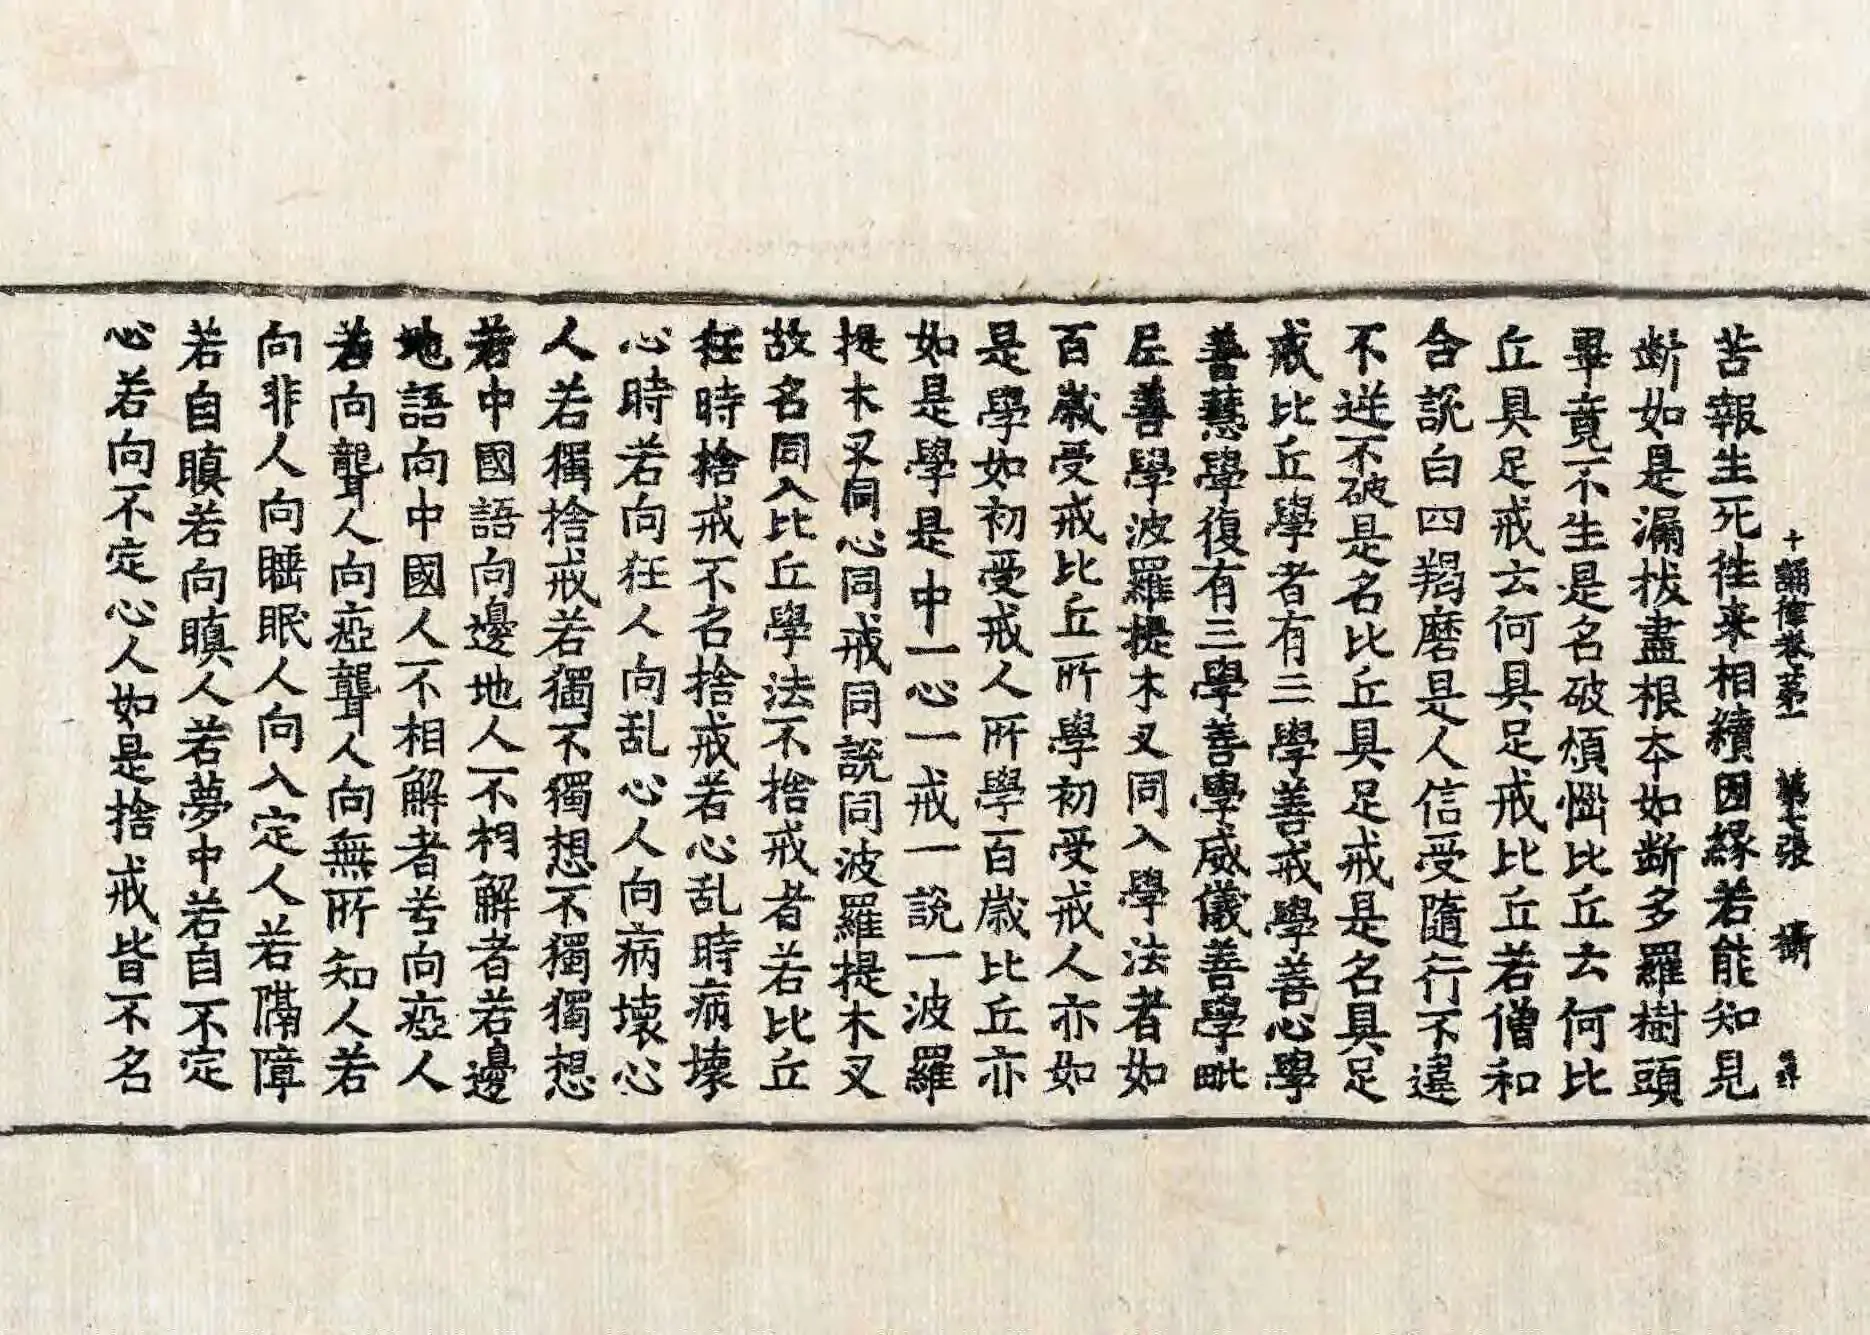 十誦律卷第一 第七張 攝
苦報生死往来相續因緣若能知見
斷如是漏拔盡根夲如斷多羅樹頭
畢竟不生是名破煩惱比丘云何比
丘具足戒云何具足戒比丘若僧和
合說白四羯磨是人信受隨行不違
不逆不破是名比丘具足戒是名具足
戒比丘學者有三學善戒學善心學
善慧學復有三學善學威儀善學毗
尼善學波羅提木叉同入學法者如
百歲受戒比丘所學初受戒人亦如
是學如初受戒人所學百歲比丘亦
如是學是中一心一戒一說一波羅
提木叉同心同戒同說同波羅提木叉
故名同入比丘學法不捨戒者若比丘
狂時捨戒不名捨戒若心乱時病壞
心時若向狂人向乱心人向病壞心
人若獨捨戒若獨不獨想不獨獨想
若中國語向邊地人不相解者若邊
地語向中國人不相解者若向瘂人
若向聾人向瘂聾人向無所知人若
向非人向睡眠人向入定人若隔障
若自瞋若向瞋人若夢中若自不定
心若向不定心人如是捨戒皆不名